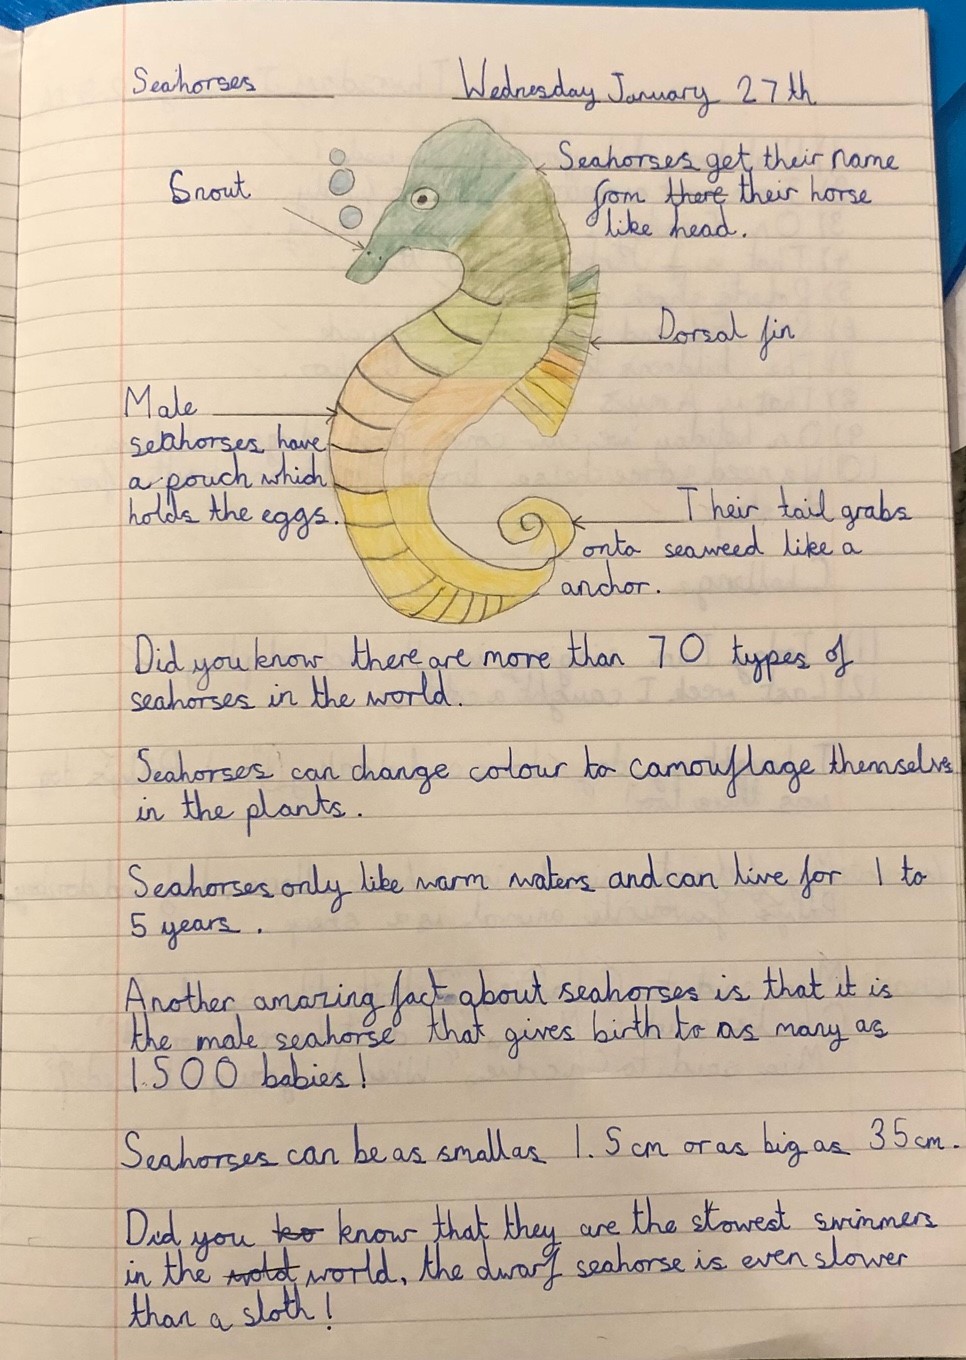 Seahorses
Wednesday January 27th
Snout
Seahorses get their name
from there their horse
like head.
Dorsal fin
Male
seahorses have
a pouch which
holds the eggs.
Their tail grabs
onto seaweed like a
anchor.
Did you know there are more than 70 types of
seahorses in the world.
Seahorses can change colour to camouflage themselvs
in the plants.
Seahorses only like warm waters and can live for 1 to
5 years.
Another amazing fact about seahorses is that it is
the male seahorse that gives birth to as many as
1.500 babies!
Seahorses can be as small as 1.5cm or as big as 35cm.
Did you ko know that they are the slowest swimmers
in the wold world, the dwarf seahorse is even slower
than a sloth!